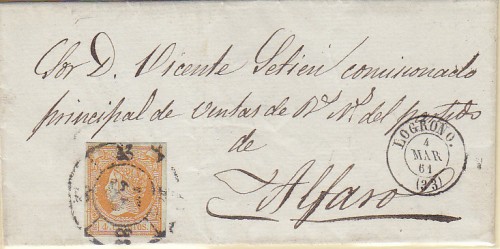 Sor D. Vicente Setien comisionado
principal de ventas de Bs. Ns. del partido
de
Alfaro
LOGROÑO.
4
MAR
61
(23)